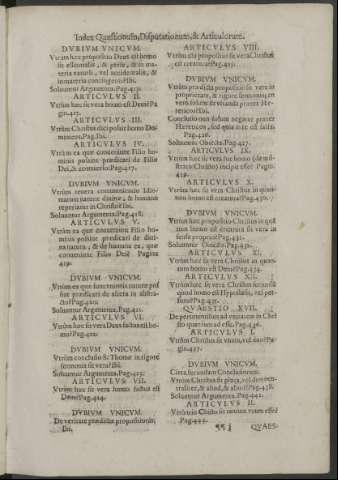 Index Quæstionum, Disputationum, & Articulorum.
DVBIVM VNICVM.
Vtrùm hæc propositio Deus est homo
sit essentialis, & perse, & in ma
teria naturali, vel accidentalis, &
in materia contingenti? Ibi.
Soluuntur Argumenta. Pag. 413.
ARTICVLVS II.
Vtrùm hæc sit vera homo est Deus? Pa
gin. 415.
ARTICVLVS III.
Vtrùm Christus dici possit homo Do-
minicus. Pag. Ibi.
ARTICVLVS IV.
Vtrùm ea quæ conueniunt Filio ho-
minis possint prædicari de Filio
Dei, & è conuerso? Pag. 417.
DVBIVM VNICVM.
Vtrùm reuera communicatio Idio-
matum naturæ diuinæ, & humanæ
reperiatur in Christo? Ibi.
Soluuntur Argumenta. Pag. 418.
ARTICVLVS V.
Vtrùm ea quæ conueniunt Filio ho-
minis possint prædicari de diui-
na natura, & de humana ea, quæ
conueniunt Filio Dei? Pagina
419.
DVBIVM VNICVM.
Vtrùm ea quæ sunt
sint prædicari de
cto? Pag. 420.
Soluuntur Argumenta. Pag. 421.
ARTICVLVS VI.
Vtrùm hæc sit vera Deus factus est ho-
mo? Pag. 422.
DVBIVM VNICVM.
Vtrùm conclusio S. Thomæ in rigore
sermonis sit vera? Ibi.
Soluuntur Argumenta. Pag. 423.
ARTICVLVS VII.
Vtrùm hæc sit vera homo factus est
Deus? Pag. 424.
DVBIVM VNICVM.
De veritate prædictæ propositionis,
Ibi.
ARTICVLVS VIII.
Vtrùm hæc propositio sit vera Christus
est creatura? Pag. 425.
DVBIVM VNICVM.
Vtrùm prædicta propositio sit vera in
proprietate, & rigore sermonis, an
verò solum sit vitanda propter Hæ-
reticos? Ibi.
Conclusio non solum negatur propter
Hæreticos, sed quia in se est falsa.
Pag. 426.
Soluuntur Obiecta. Pag. 427.
ARTICVLVS IX.
Vtrùm hæc sit vera hic homo (demō-
strato Christo) incipit esse? Pagin.
429.
ARTICVLVS X.
Vtrùm hæc sit vera Christus in quan-
tum homo est creatura? Pag. 430.
DVBIVM VNICVM.
Vtrùm hæc propositio Christus in quā
tum homo est creatura sit vera in
sensu proprio? Pag. 431.
Soluuntur Obiecta. Pag. 432.
ARTICVLVS XI.
Vtrùm hæc sit vera Christus in quan-
tum homo est Deus? Pag. 434.
ARTICVLVS XII.
Vtrùm hæc sit vera Christus secundū
quod homo est Hypostasis, vel per-
sona? Pag. 435.
QVAESTIO XVII.
De pertinentibus ad vnitatem in Chri
sto quantum ad esse. Pag. 436.
ARTICVLVS I.
Vtrùm Christus sit vnum, vel duo? Pa
gin. 437.
DVBIVM VNICVM.
Circa hanc Conclusionem.
Vtrùm Christus sit plura, vel duo neu-
traliter, & aliud, & aliud? Pag. 438.
Soluuntur Argumenta. Pag. 441.
ARTICVLVS II.
Vtrùm in Christo sit tantum vnum esse?
Pag. 442.
¶¶ 3
QVAES-